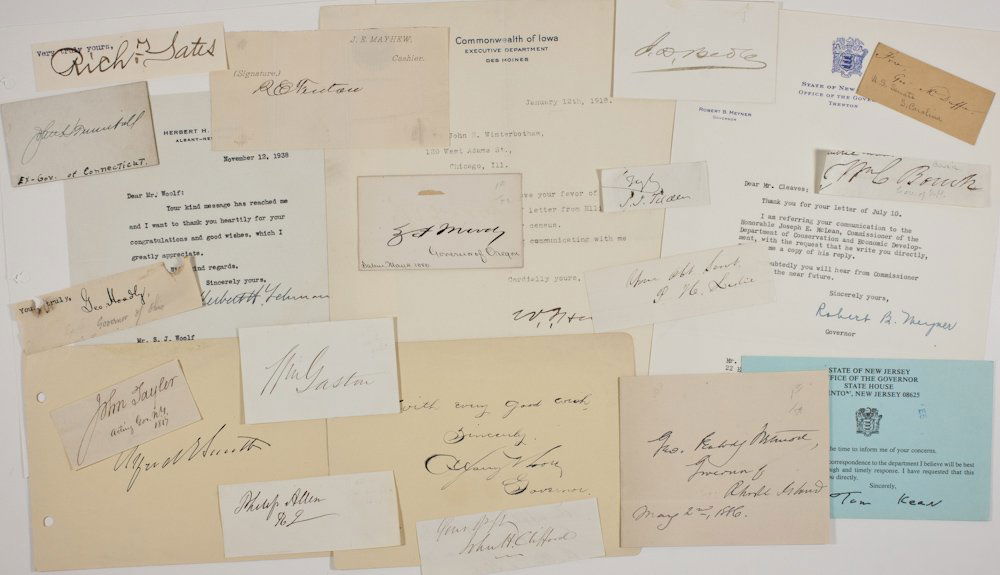 Very truly yours,
Rich'd Yates
J. E. MAYHEW,
Cashier.
(Signature.)
R E Fenton
Commonwealth of Iowa
EXECUTIVE DEPARTMENT
DES MOINES
January 12th, 1918.
John R. Winterbotham,
120 West Adams St.,
Chicago, Ill.
ve your favor of
letter from Ell
census.
communicating with me
Cordially yours,
STATE OF NEW
OFFICE OF THE GOVER
TRENTON
ROBERT B. MEYNER
GOVERNOR
Dear Mr. Cleaves:
Thank you for your letter of July 10.
I am referring your communication to the
Honorable Joseph E. McLean, Commissioner of the
Department of Conservation and Economic Develop-
ment, with the request that he write you directly,
me a copy of his reply.
oubtedly you will hear from Commissioner
the near future.
Sincerely yours,
Robert B. Meyner
Governor
Mr.
22 H
U.S. Senate
S. Carolina
Wm C Bouck
Ex-Gov. of Connecticut.
HERBERT H.
ALBANY-NE
November 12, 1938
Dear Mr. Woolf:
Your kind message has reached me
and I want to thank you heartily for your
congratulations and good wishes, which I
greatly appreciate.
kind regards.
Sincerely yours,
Herbert H. Lehman
Mr. S. J. Woolf
Z F Moody
Governor of Oregon
S. J. Tilden
Your Obt Servt
P. H. Leslie
Yours truly,
Geo. Hoadly,
Governor of Ohio
John Tayler
Acting Gov. N.Y.
1817
Alfred E Smith
Wm Gaston
Philip Allen
R I
with every good wish,
Sincerely,
A Harry Moore
Governor.
Yours Resp'y
John H. Clifford
Geo. Peabody Wetmore,
Governor of
Rhode Island
May 2nd, 1886.
STATE OF NEW JERSEY
OFFICE OF THE GOVERNOR
STATE HOUSE
ENTON, NEW JERSEY 08625
the time to inform me of your concerns.
correspondence to the department I believe will be best
ough and timely response. I have requested that this
ou directly.
Sincerely,
Tom Kean